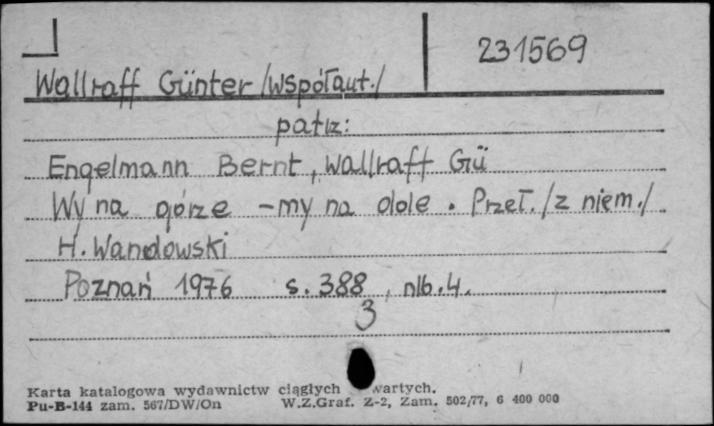 231569
Wallraff Günter /współaut./
patrz:
Engelmann Bernt, Wallraff Gü
Wy na górze - my na dole. Przeł. /z niem./
H. Wandowski
Poznań 1976 s. 388, nlb. 4.
3
Karta katalogowa wydawnictw ciągłych wartych.
Pu-B-144 zam. 567/DW/On W.Z.Graf. Z-2, Zam. 502/77, 6 400 000